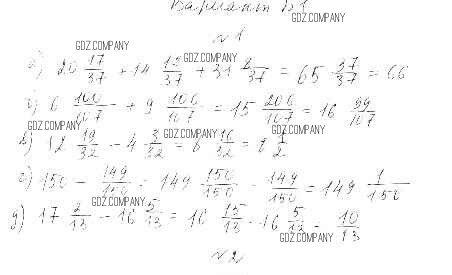 Вариант №1
GDZ.COMPANY
№1
GDZ.COMPANY
GDZ.COMPANY
а) 20 17/37 + 14 13/37 + 31 /37 = 65 37/37 = 66
6 100/107 + 9 106/107 = 15 206/107 = 16 99/107
GDZ.COMPANY
GDZ.COMPANY
GDZ.COMPANY
12 19/32 - 4 3/32 = 8 16/32 = 8 1/2
150 - 149/150 = 149 150/150 - 149/150 = 149 1/150
GDZ.COMPANY
д) 17 2/13 - 16 5/13 = 16 15/13 - 16 5/13 = 10/13
GDZ.COMPANY
№2